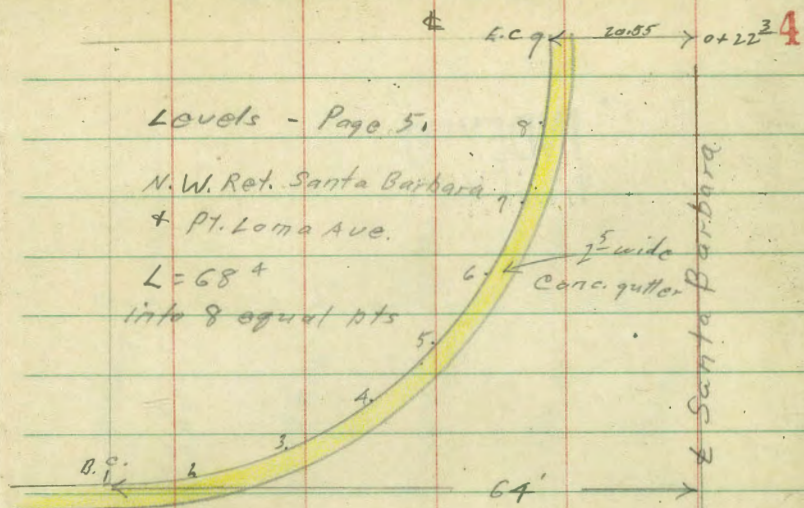 ℄
E.C 9 20.55 0+22³ 4
Levels - Page 5.
8.
N.W. Ret. Santa Barbara
7.
& Pt. Loma Ave.
6.
2⁵ wide
Conc. gutter
L = 68⁴
into 8 equal pts
5.
4.
3.
2
B.C.
1
64'
℄ Santa Barbara